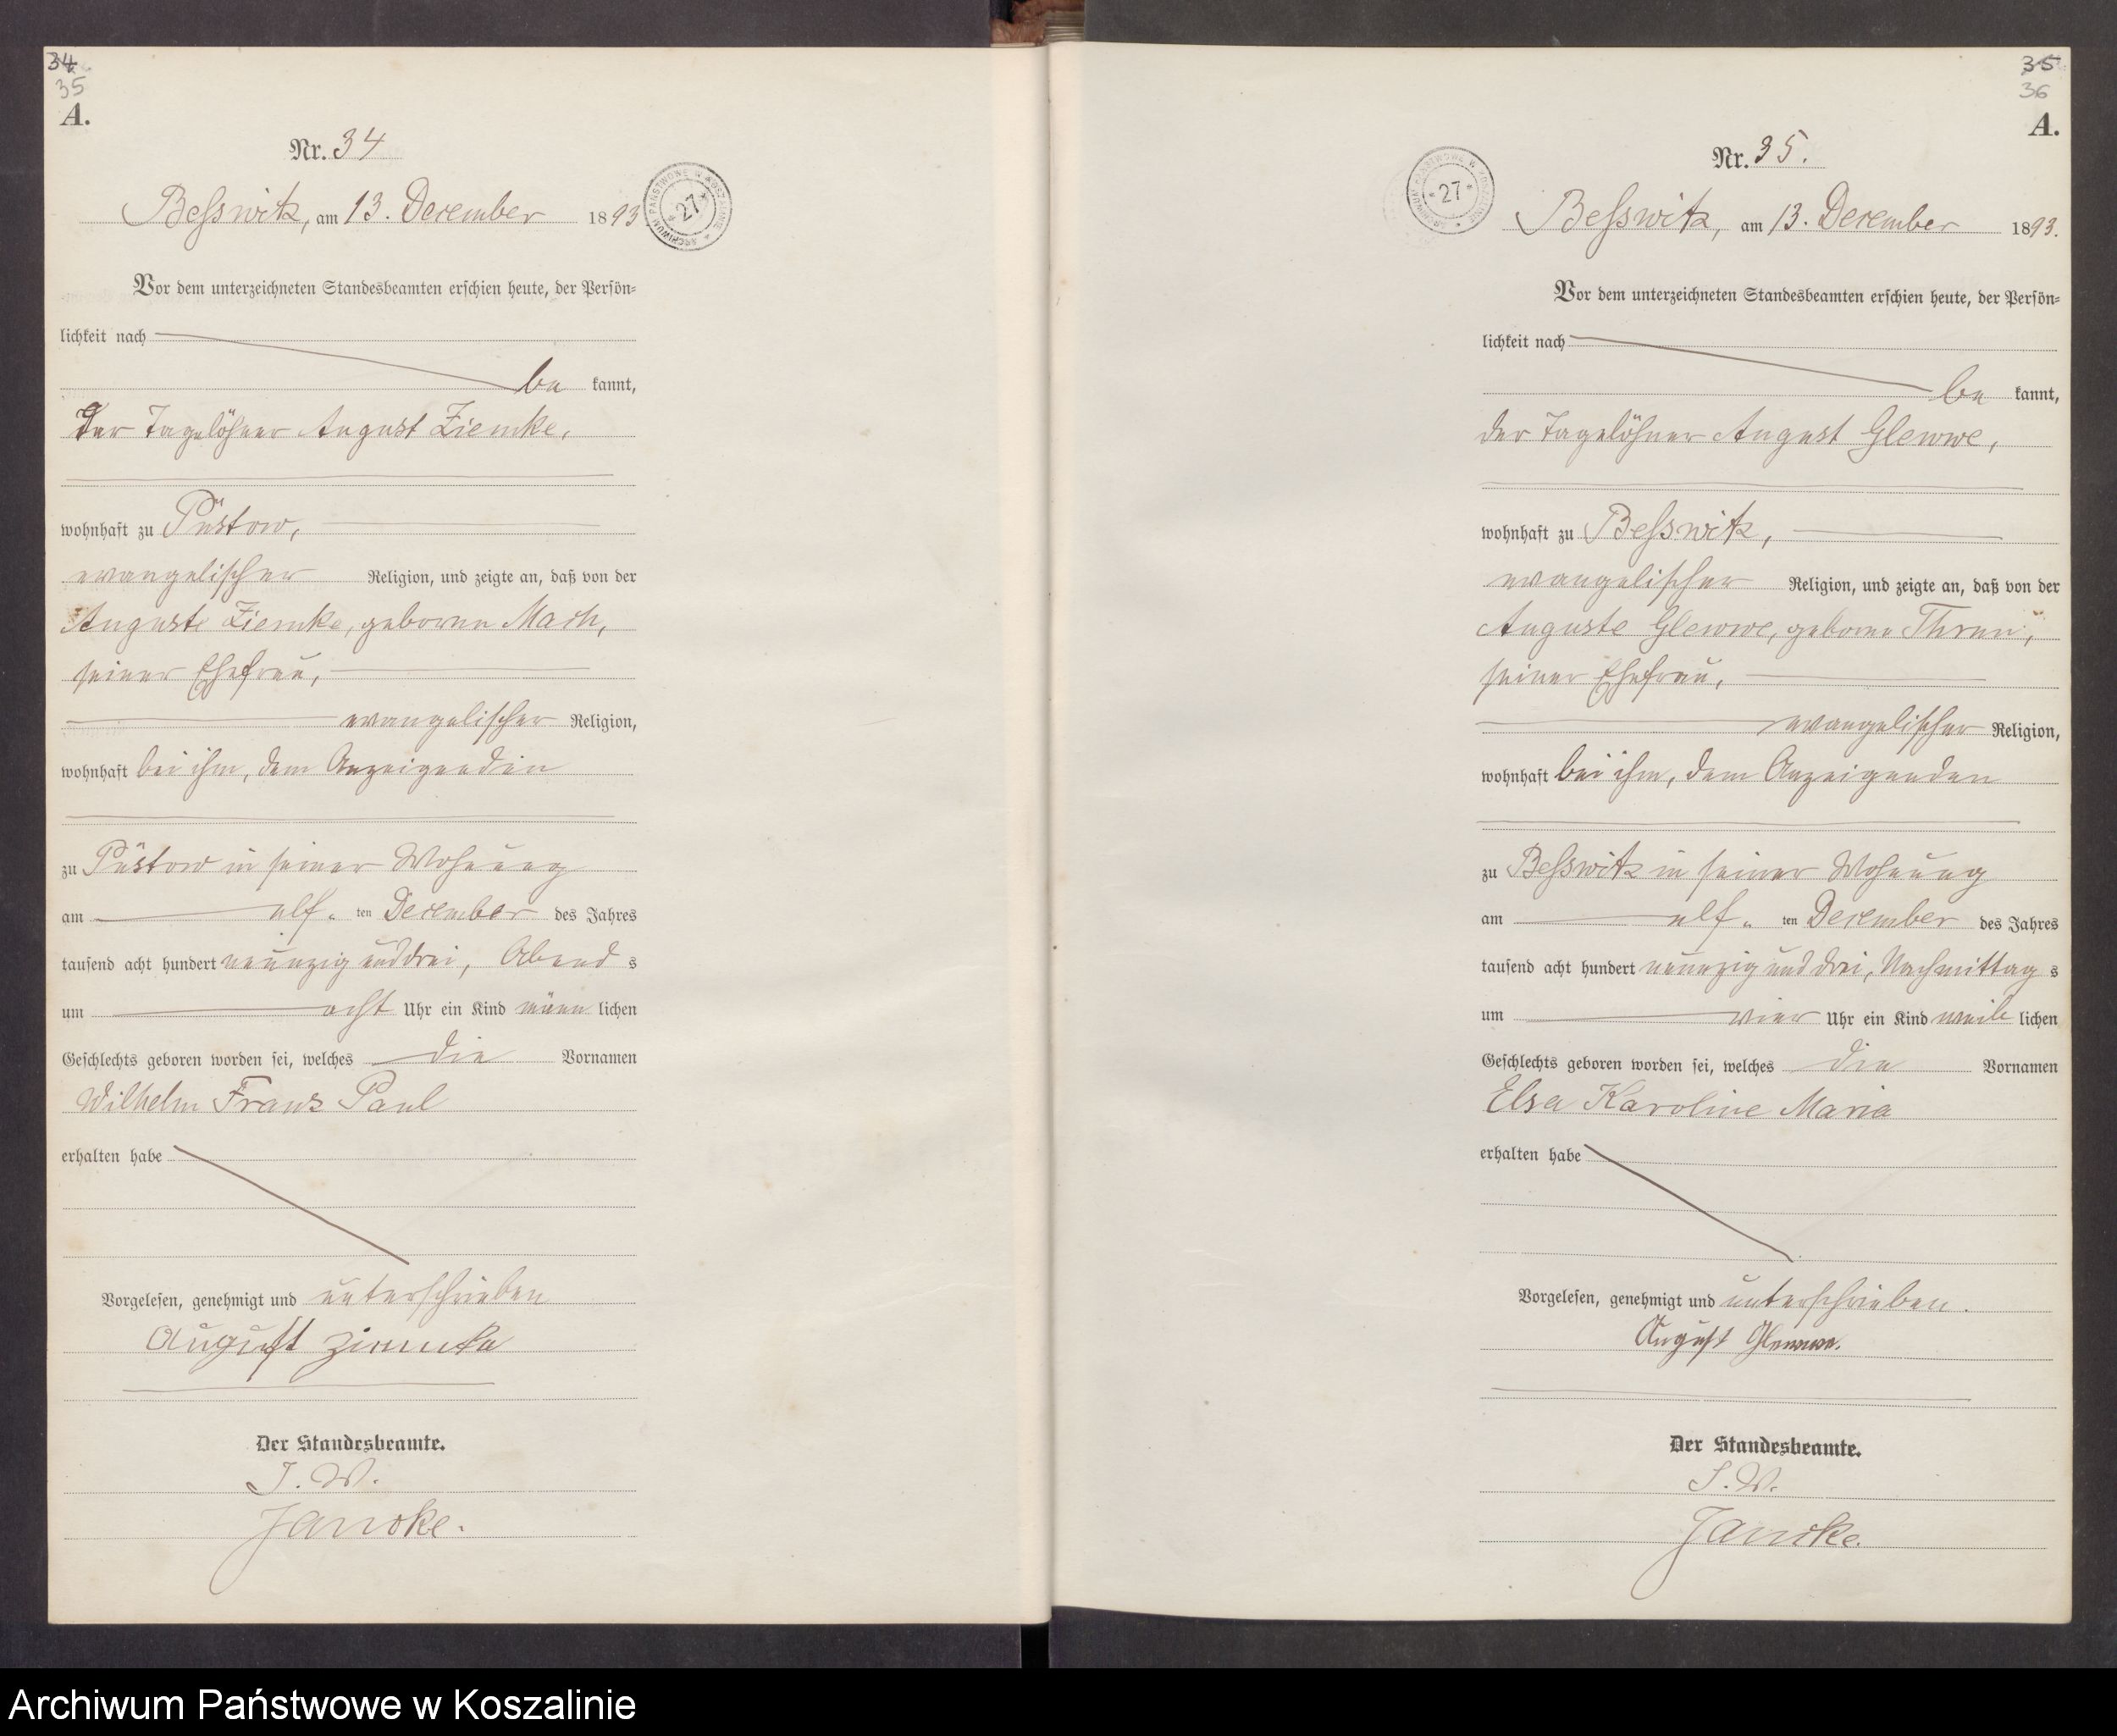 34
35
A.
Nr. 34
Beßwitz, am 13. December 1893
ARCHIWUM PAŃSTWOWE W KOSZALINIE * 27 *
Vor dem unterzeichneten Standesbeamten erschien heute, der Persön-
lichkeit nach
be kannt,
der Tagelöhner August Ziemke,
wohnhaft zu Püstow,
evangelischer Religion, und zeigte an, daß von der
Auguste Ziemke, geborene Mach,
seiner Ehefrau,
evangelischer Religion,
wohnhaft bei ihm, dem Anzeigenden
zu Püstow in seiner Wohnung
am elf ten December des Jahres
tausend acht hundert neunzig und drei, Abend s
um acht Uhr ein Kind männ lichen
Geschlechts geboren worden sei, welches die Vornamen
Wilhelm Franz Paul
erhalten habe
Vorgelesen, genehmigt und unterschrieben
August Ziemke
Der Standesbeamte.
J. V.
Jancke.
35
36
A.
Nr. 35.
ARCHIWUM PAŃSTWOWE W KOSZALINIE * 27 *
Beßwitz, am 13. December 1893.
Vor dem unterzeichneten Standesbeamten erschien heute, der Persön-
lichkeit nach
be kannt,
der Tagelöhner August Glewwe,
wohnhaft zu Beßwitz,
evangelischer Religion, und zeigte an, daß von der
Auguste Glewwe, geborene Thrun,
seiner Ehefrau,
evangelischer Religion,
wohnhaft bei ihm, dem Anzeigenden
zu Beßwitz in seiner Wohnung
am elf ten December des Jahres
tausend acht hundert neunzig und drei, Nachmittag s
um vier Uhr ein Kind weib lichen
Geschlechts geboren worden sei, welches die Vornamen
Elsa Karoline Maria
erhalten habe
Vorgelesen, genehmigt und unterschrieben.
August Glewwe.
Der Standesbeamte.
J. V.
Jancke.
Archiwum Państwowe w Koszalinie